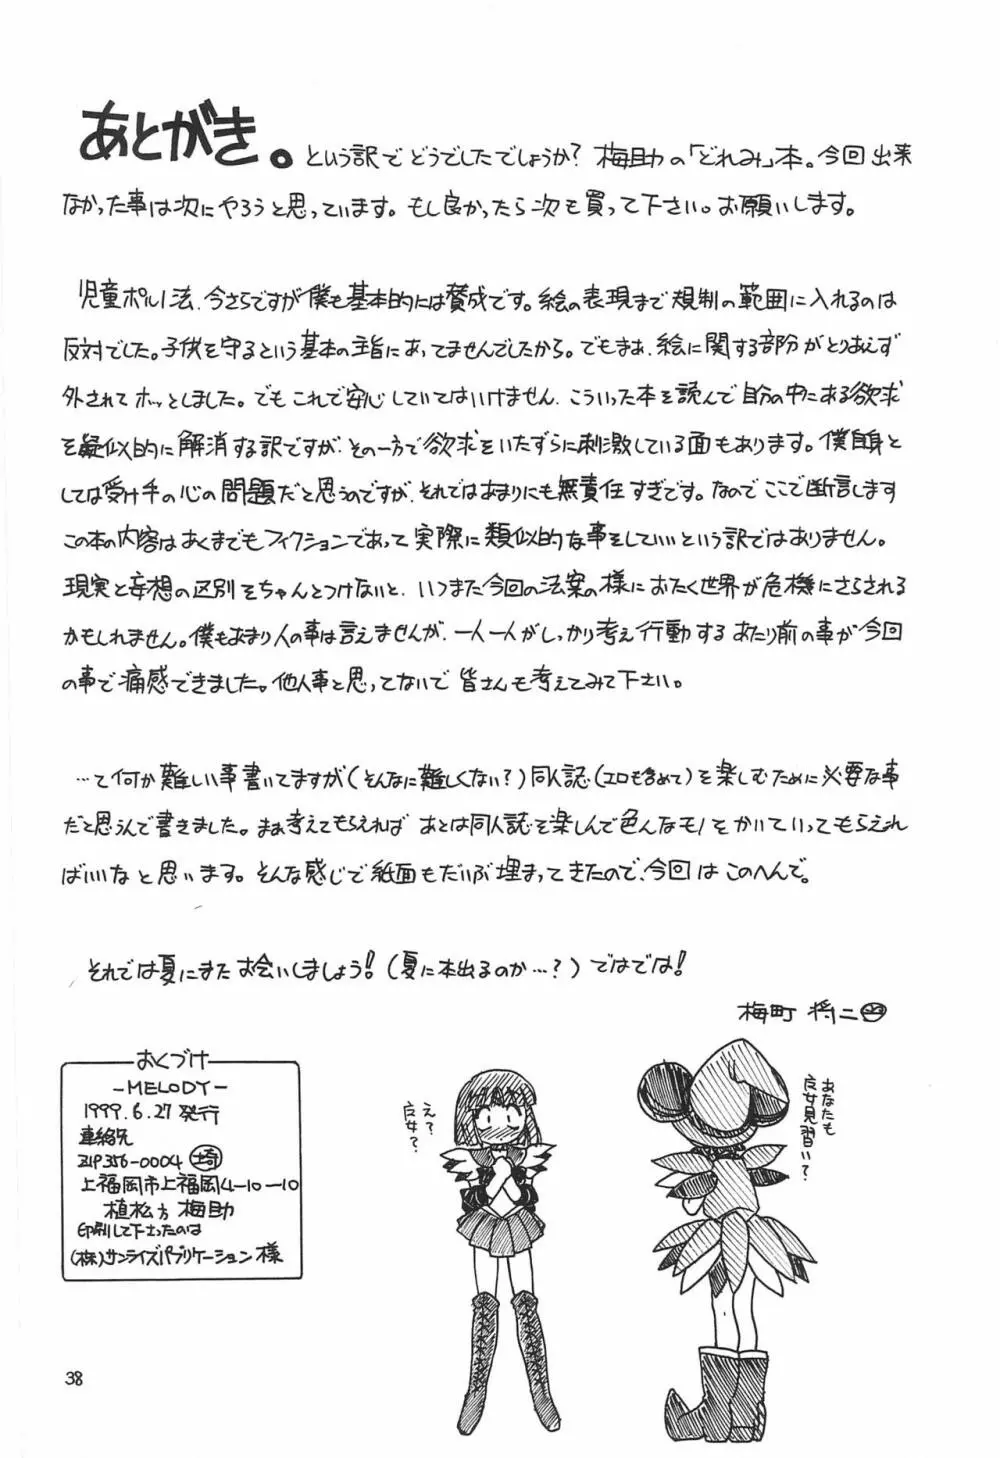 あとがき。という訳でどうでしたでしょうか? 梅助の「どれみ」本。今回出来
なかった事は次にやろうと思っています。もし良かったら次も買って下さい。お願いします。
児童ポルノ法、今さらですが僕も基本的には賛成です。絵の表現まで規制の範囲に入れるのは
反対でした。子供を守るという基本の主旨にあってませんでしたから。でもまぁ、絵に関する部分がとりあえず
外されてホッとしました。でもこれで安心していてはいけません、こういった本を読んで自分の中にある欲求
を疑似的に解消する訳ですが、その一方で欲求をいたずらに刺激している面もあります。僕自身と
しては受け手の心の問題だと思うのですが、それではあまりにも無責任すぎです。なのでここで断言します
この本の内容はあくまでもフィクションであって実際に類似的な事をしていいという訳ではありません。
現実と妄想の区別をちゃんとつけないと、いつまた今回の法案の様におたく世界が危機にさらされる
かもしれません。僕もあまり人の事は言えませんが、一人一人がしっかり考え行動するあたり前の事が今回
の事で痛感できました。他人事と思ってないで皆さんも考えてみて下さい。
…て何か難しい事書いてますが(そんなに難しくない?)同人誌(エロも含めて)を楽しむために必要な事
だと思うんで書きました。まぁ考えてもらえればあとは同人誌を楽しんで色んなモノをかいていってもらえれ
ばいいなと思います。そんな感じで紙面もだいぶ埋まってきたので、今回はこのへんで。
それでは夏にまたお会いしましょう!(夏に本出るのか…?)ではでは!
梅町 将二
おくづけ
-MELODY-
1999.6.27 発行
連絡先
ZIP 356-0004 埼
上福岡市上福岡4-10-10
植松方 梅助
印刷して下さったのは
(株)サンライズパブリケーション様
え?
魔女?
あなたも
魔女見習い?
38